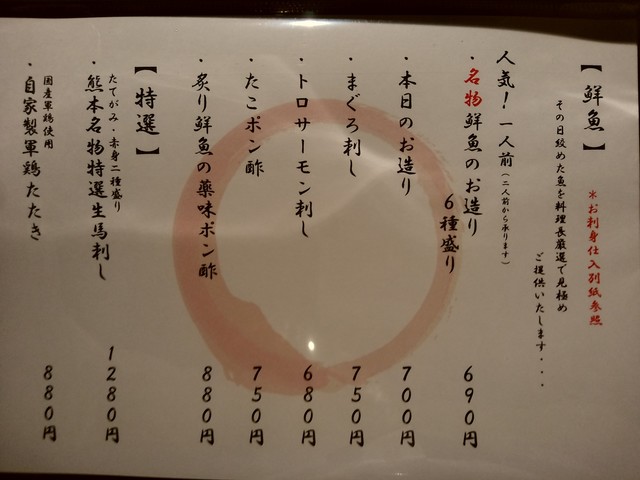 【鮮魚】
＊お刺身仕入別紙参照
その日絞めた魚を料理長厳選で見極め
ご提供いたします・・・
人気！一人前（二人前から承ります）
・名物鮮魚のお造り
6種盛り
690円
・本日のお造り 700円
・まぐろ刺し 750円
・トロサーモン刺し 680円
・たこポン酢 750円
・炙り鮮魚の薬味ポン酢 880円
【特選】
たてがみ・赤身二種盛り
・熊本名物特選生馬刺し 1280円
国産軍鶏使用
・自家製軍鶏たたき 880円